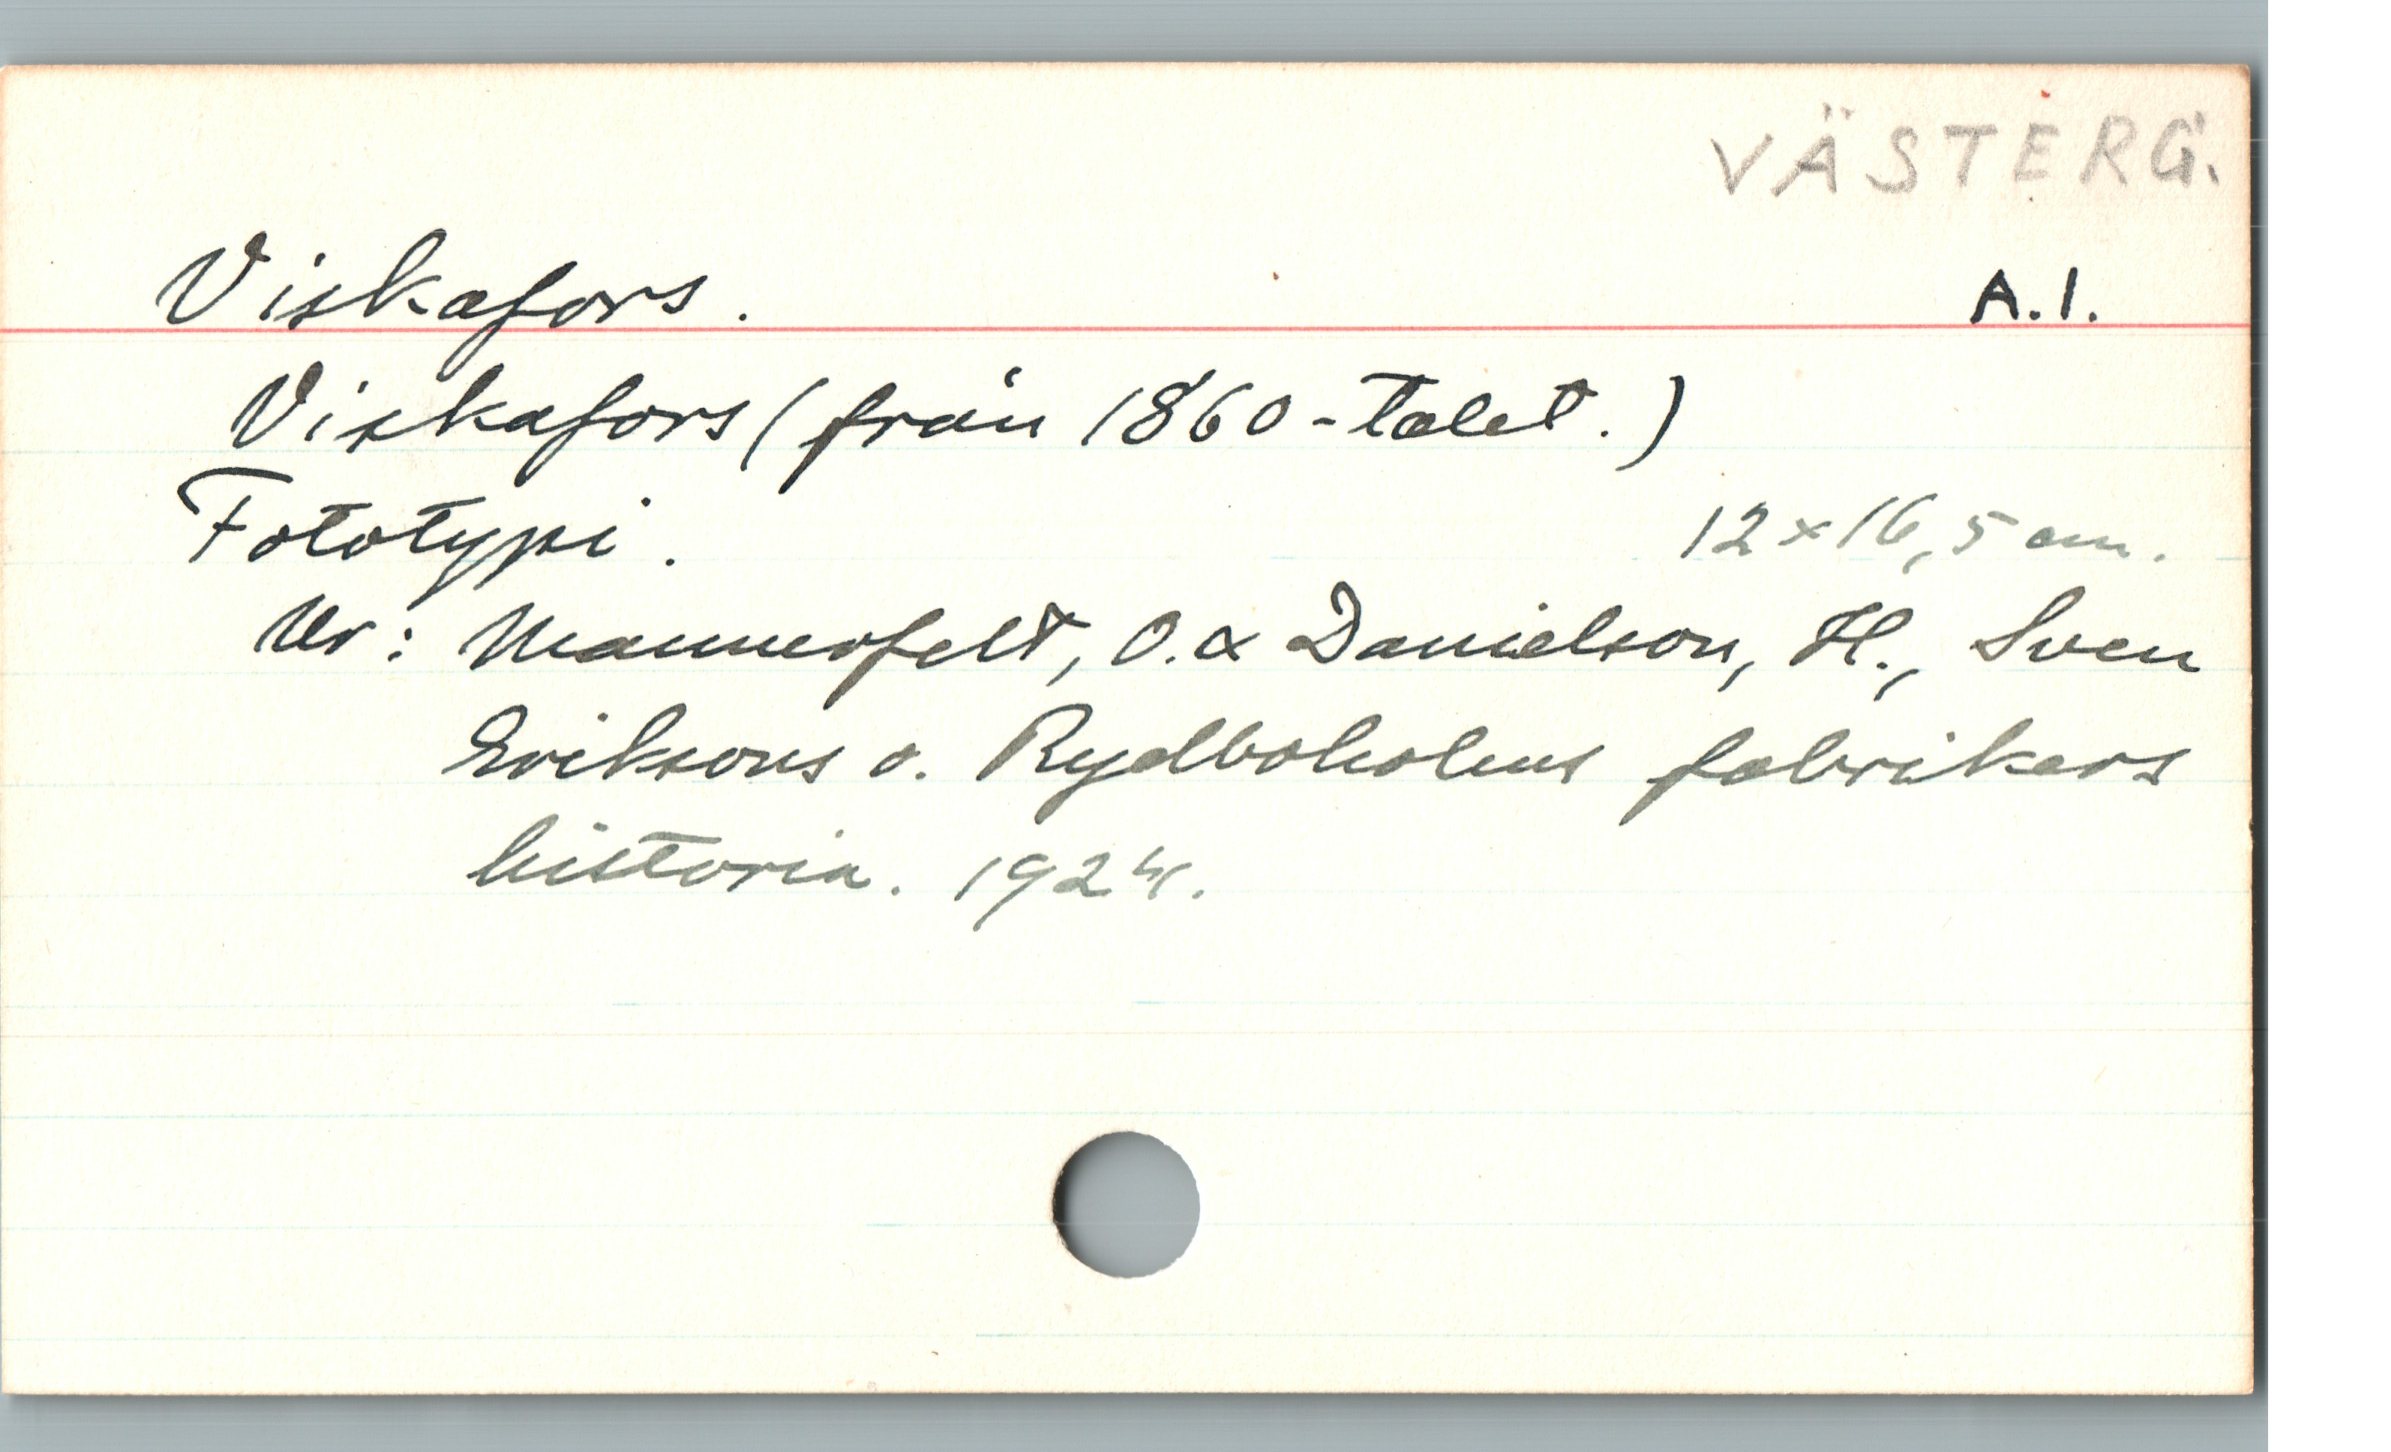 VÄSTERG.
Viskafors. A.1.
Viskafors (från 1860-talet.)
Fototypi. 12 x 16,5 cm.
Ur: Mannerfelt, O. & Danielson, H., Sven
Eriksons o. Rydboholms fabrikers
historia. 1924.